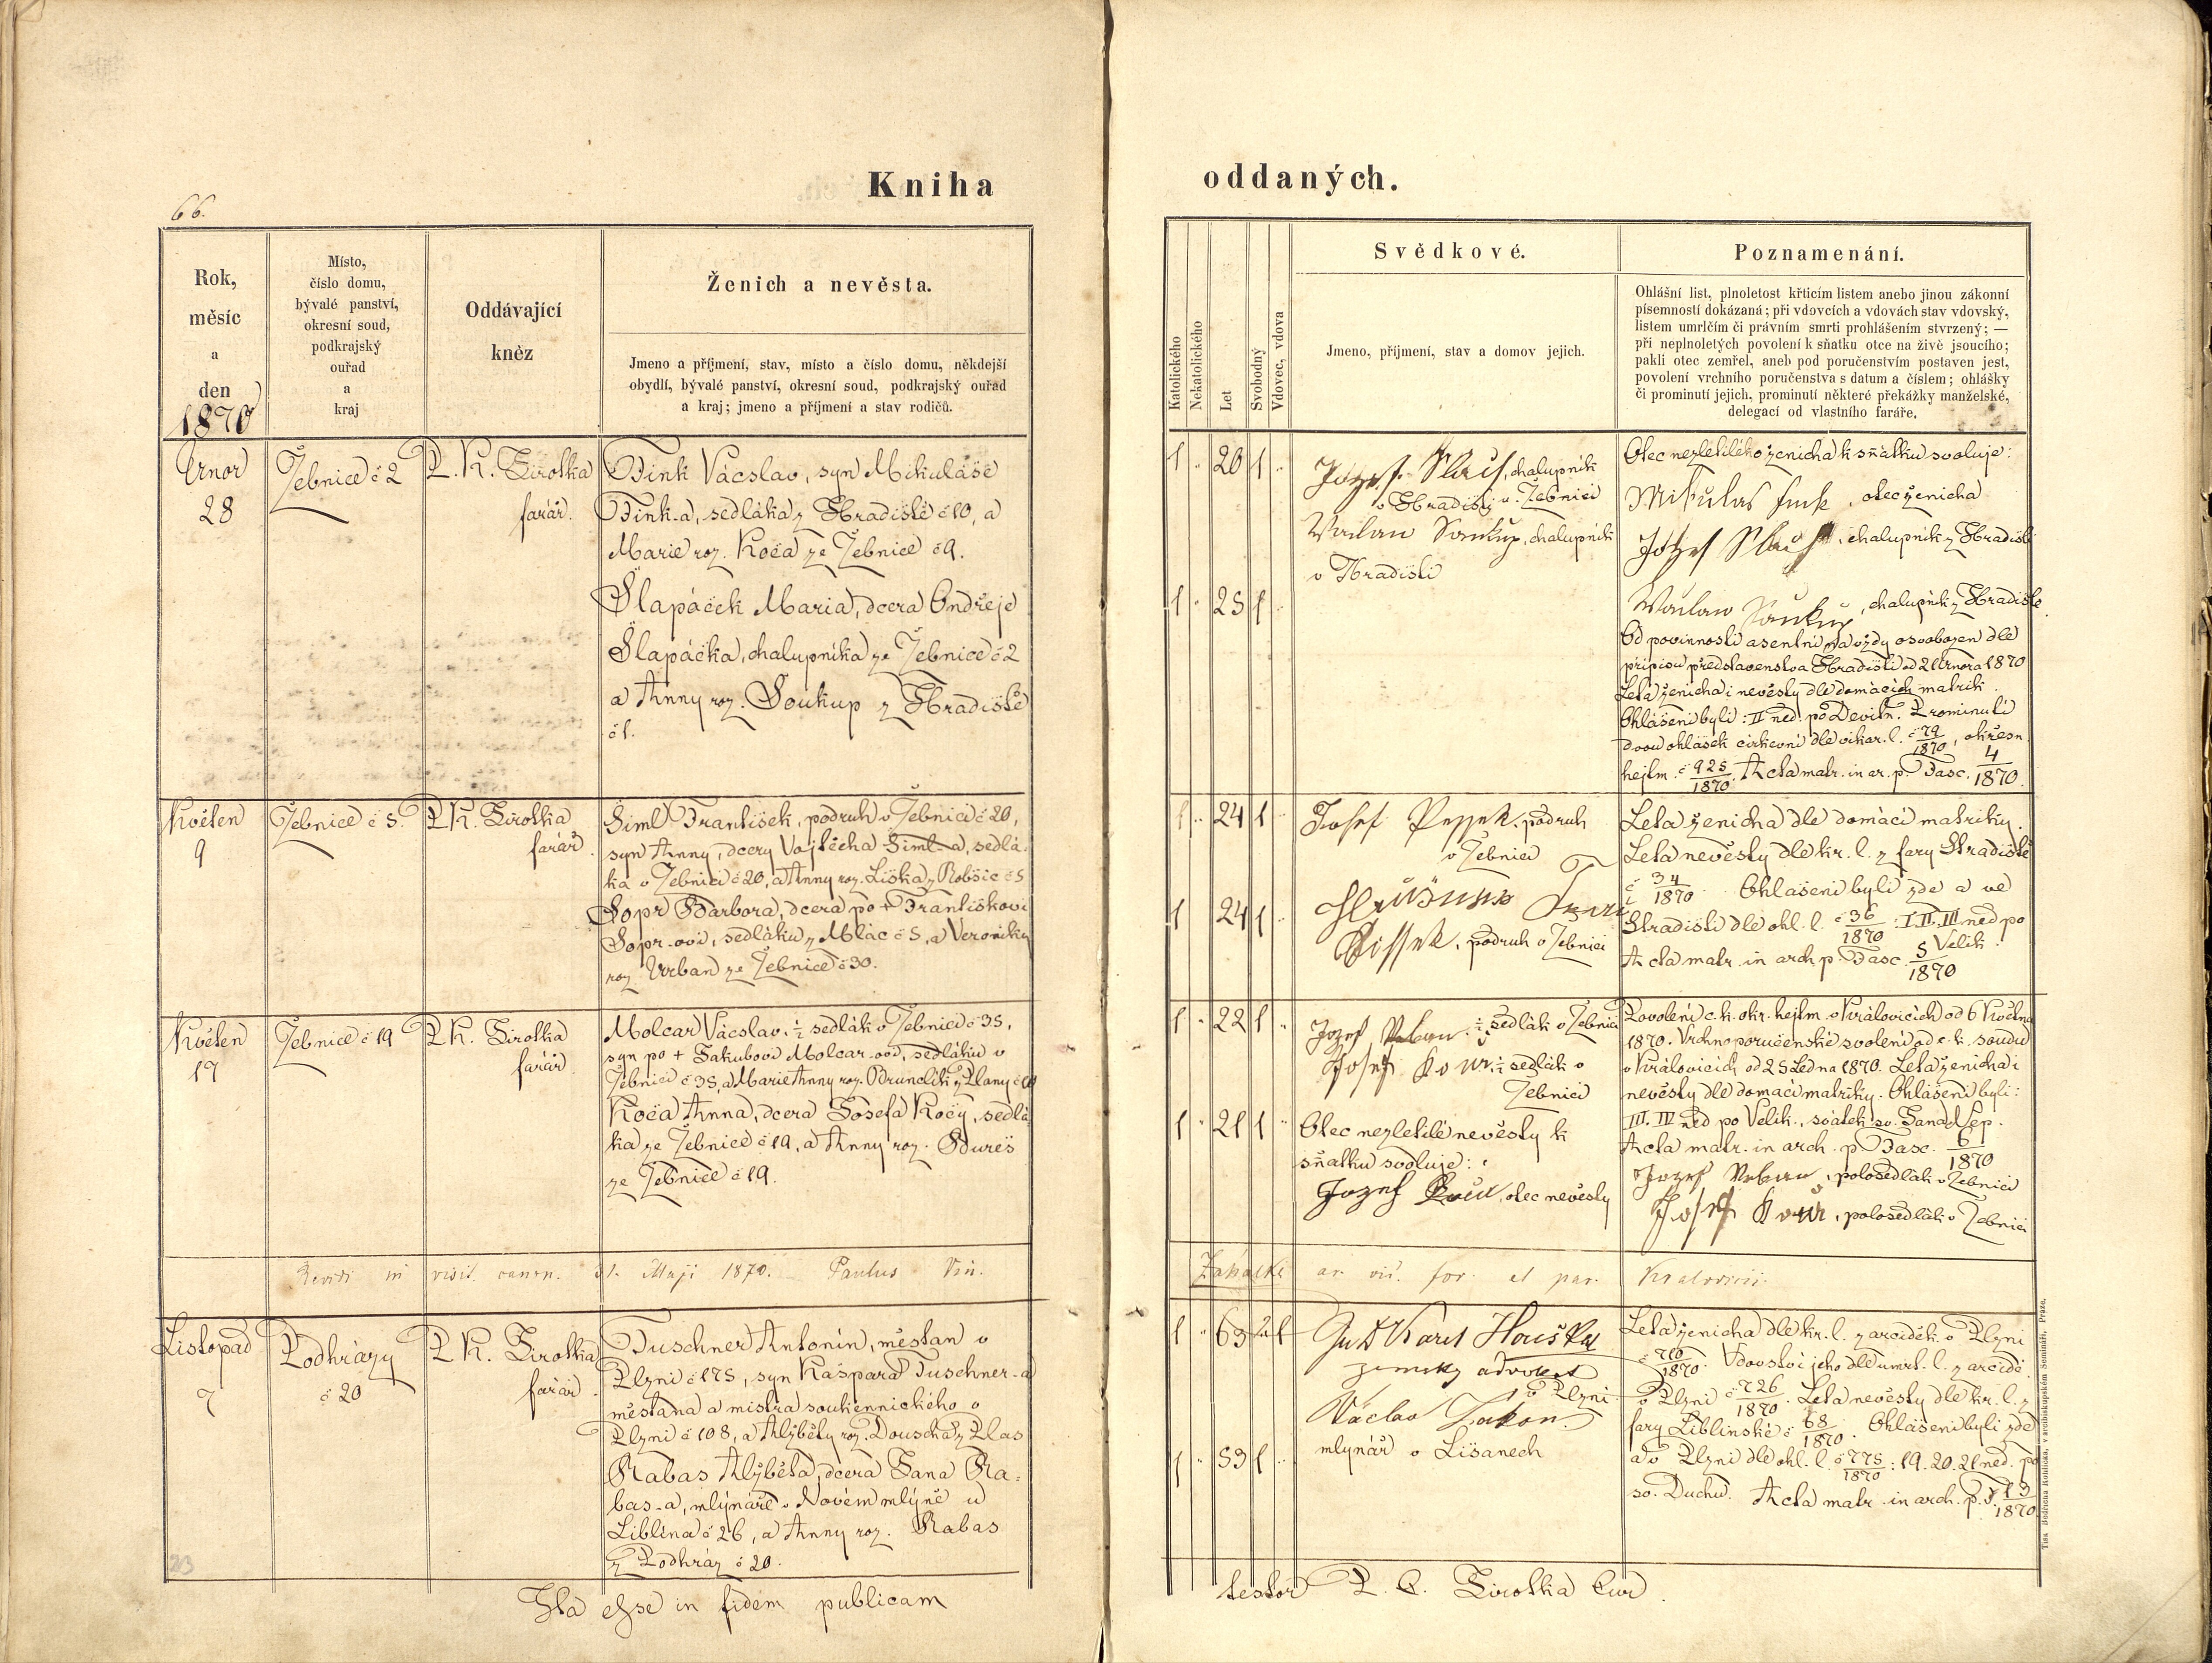 Kniha
oddaných.
66.
Rok,
měsíc
a
den
1870
Místo,
číslo domu,
bývalé panství,
okresní soud,
podkrajský
ouřad
a
kraj
Oddávající
kněz
Ženich a nevěsta.
Jmeno a příjmení, stav, místo a číslo domu, někdejší
obydlí, bývalé panství, okresní soud, podkrajský ouřad
a kraj; jmeno a příjmení a stav rodičů.
Katolického
Nekatolického
Let
Svobodný
Vdovec, vdova
Svědkové.
Jmeno, příjmení, stav a domov jejich.
Poznamenání.
Ohlášní list, plnoletost křticím listem anebo jinou zákonní
písemností dokázaná; při vdovcích a vdovách stav vdovský,
listem umrlčím či právním smrti prohlášením stvrzený; —
při neplnoletých povolení k sňatku otce na živě jsoucího;
pakli otec zemřel, aneb pod poručenstvím postaven jest,
povolení vrchního poručenstva s datum a číslem; ohlášky
či prominutí jejich, prominutí některé překážky manželské,
delegací od vlastního faráře.
Únor
28
Žebnice č 2
P. K. Sirotka
farář.
Fink Václav, syn Mikuláše
Fink-a, sedláka z Hradiště č 10, a
Marie roz. Koča ze Žebnice č 9.
Šlapáček Maria, dcera Ondřeje
Šlapáčka, chalupníka ze Žebnice č 2
a Anny roz. Soukup z Hradiště
č 1.
1 20 1
1 25 1
Jozef, chalupník
v Hradišti u Žebnici
Václav Soukup, chalupník
v Hradišti
Otec nezletilého ženicha k sňatku svoluje:
Mikulas Fink, otec ženicha
Jozef, chalupník z Hradiště
Václav Soukup, chalupník z Hradiště
Od povinnosti asentní navždy osvobozen dle
přípisu představenstva Hradiští od 21 února 1870
Leta ženicha i nevěsty dle domácích matrik.
Ohlášeni byli: II ned. po Devítn. Prominutí
dvou ohlášek církevní dle vikar. l. č 79/1870, okresn.
hejtm. č 925/1870. Acta matr. in ar. p. Fasc. 4/1870.
Květen
9
Žebnice č 5.
P. K. Sirotka
farář.
Siml František, podruh v Žebnici č 20,
syn Anny, dcery Vojtěcha Siml-a, sedlá-
ka v Žebnici č 20, a Anny roz. Liška z Robšic č 5
Sopr Barbora, dcera po + Františkovi
Sopr-ovi, sedláku z Mlác č 5, a Veroniky
roz. Urban ze Žebnice č 30.
1 24 1
1 24 1
Josef, podruh
v Žebnici
podruh v Žebnici
Leta ženicha dle domácí matriky.
Leta nevěsty dle kr. l. z fary Hradiště
č 34/1870. Ohlášeni byli zde a ve
Hradišti dle ohl. l. č 36/1870: I. II. III ned po
Velik.
Acta matr. in arch. p. Fasc. 5/1870
Květen
17
Žebnice č 19
P. K. Sirotka
farář
Molcar Václav, ½ sedlák v Žebnici č 35,
syn po + Jakubovi Molcar-ovi, sedláku v
Žebnici č 35, a Marie Anny roz.
Koča Anna, dcera Josefa Koči, sedlá-
ka ze Žebnice č 19, a Anny roz. Bureš
ze Žebnice č 19.
1 22 1
1 21 1
Jozef Urban, ½ sedlák v Žebnici
Josef ½ sedlák v
Žebnici
Otec nezletilé nevěsty k
sňatku svoluje:
Jozef Koči, otec nevěsty
Povolení c. k. okr. hejtm. v Královicích od 6 Května
1870. Vrchnoporučenské svolení od c. k. soudu
v Královicích od 25 Ledna 1870. Leta ženicha i
nevěsty dle domácí matriky. Ohlášeni byli:
III. IV ned po Velik., svátek sv. Jana Nep.
Acta matr. in arch. p. Fasc. 6/1870
Jozef Urban, polosedlák v Žebnici
Josef polosedlák v Žebnici
Revidi in visit. canon. 31. Maji 1870. Paulus
ar. vic. for. et par. Kralovicii.
Listopad
7
Podhrázy
č 20
P. K. Sirotka
farář.
Tuschner Antonín, měšťan v
Plzni č 175, syn Kašpara Tuschner-a
měšťana a mistra soukennického v
Plzni č 108, a Alžběty roz. Douscha z Plas
Rabas Alžběta, dcera Jana Ra-
bas-a, mlynáře v Novém mlýně u
Liblína č 26, a Anny roz. Rabas
z Podhráz č 20.
1 63 1
1 53 1
JuD Karel Houška
zemský advokat
v Plzni
Václav
mlynář v Lišanech
Leta ženicha dle kr. l. z arciděk. v Plzni
č 710/1870. Vdovství jeho dle umrl. l. z arcidě.
v Plzni č 726/1870. Leta nevěsty dle kr. l. z
fary Liblínské č 68/1870. Ohlášeni byli zde
a v Plzni dle ohl. l. č 775/1870: 19. 20. 21 ned. po
sv. Duchu. Acta matr. in arch. p. F. 13/1870
23
Ita esse in fidem publicam
testor P. C. Sirotka Cur.